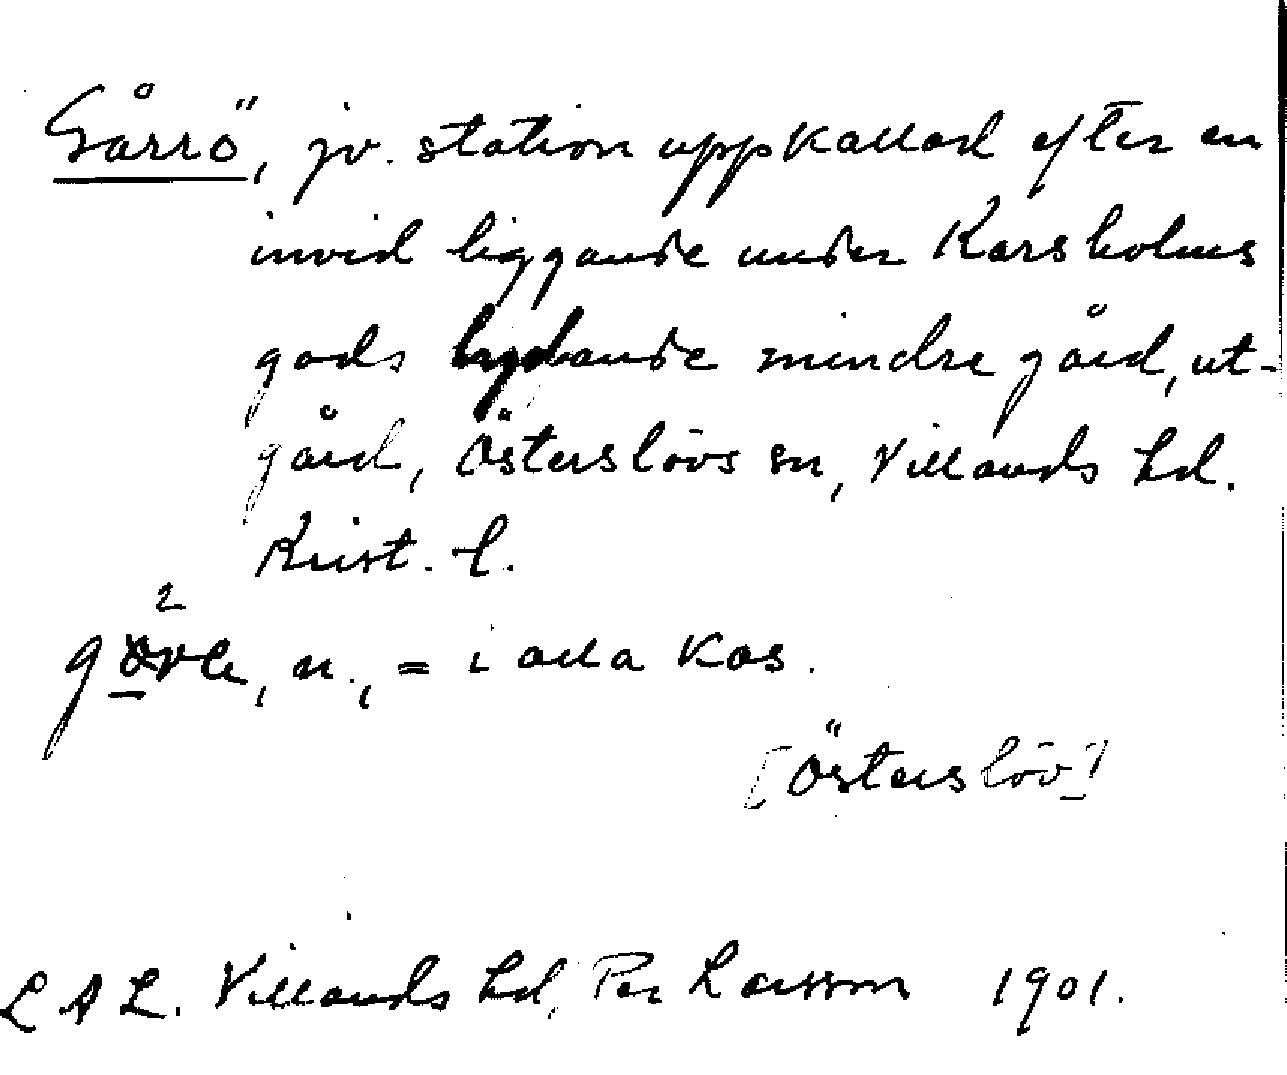 Gårrö, jv. station uppkallad efter en
invid liggande under Karsholms
gods lydande mindre gård, ut-
gård, Österslövs sn, Villands hd.
Krist. l.
n., = i alla kas.
[Österslöv]
L A L. Villands hd, Per Larsson 1901.